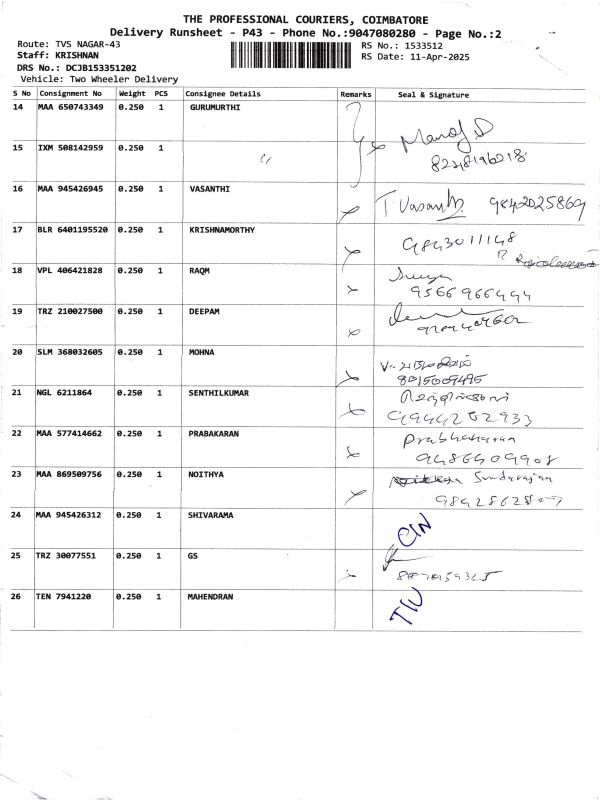 THE PROFESSIONAL COURIERS, COIMBATORE
Delivery Runsheet - P43 - Phone No.:9047080280 - Page No.:2
Route: TVS NAGAR-43
RS No.: 1533512
Staff: KRISHNAN
RS Date: 11-Apr-2025
DRS No.: DCJB153351202
Vehicle: Two Wheeler Delivery
S No Consignment No Weight PCS Consignee Details Remarks Seal & Signature
14 MAA 650743349 0.250 1 GURUMURTHI
Manoj D
15 IXM 508142959 0.250 1
16 MAA 945426945 0.250 1 VASANTHI
T Vasanthi 9842025869
17 BLR 6401195520 0.250 1 KRISHNAMORTHY
9843011148
18 VPL 406421828 0.250 1 RAQM
9566966494
19 TRZ 210027500 0.250 1 DEEPAM
20 SLM 368032605 0.250 1 MOHNA
8015009495
21 NGL 6211864 0.250 1 SENTHILKUMAR
செந்தில்குமார்
9944202933
22 MAA 577414662 0.250 1 PRABAKARAN
Prabhakaran
9486409908
23 MAA 869509756 0.250 1 NOITHYA
Sundarajan
24 MAA 945426312 0.250 1 SHIVARAMA
CIN
25 TRZ 30077551 0.250 1 GS
26 TEN 7941220 0.250 1 MAHENDRAN